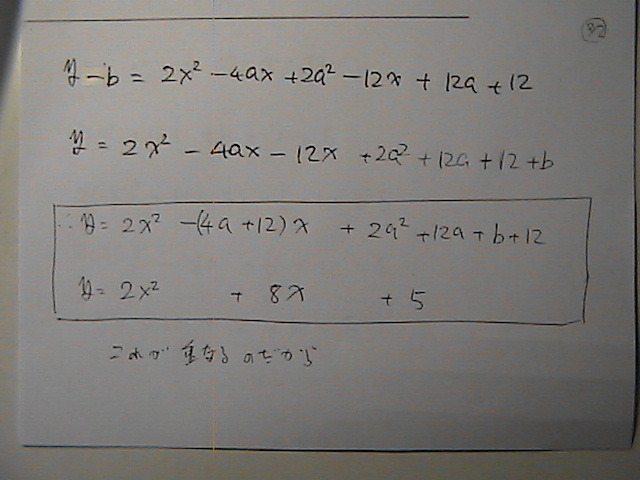 32
y-b = 2x² -4ax +2a² -12x + 12a +12
y = 2x² - 4ax - 12x +2a² +12a +12 +b
∴ y= 2x² -(4a +12) x + 2a² +12a + b +12
y= 2x² + 8x + 5
これが 重なるのだから